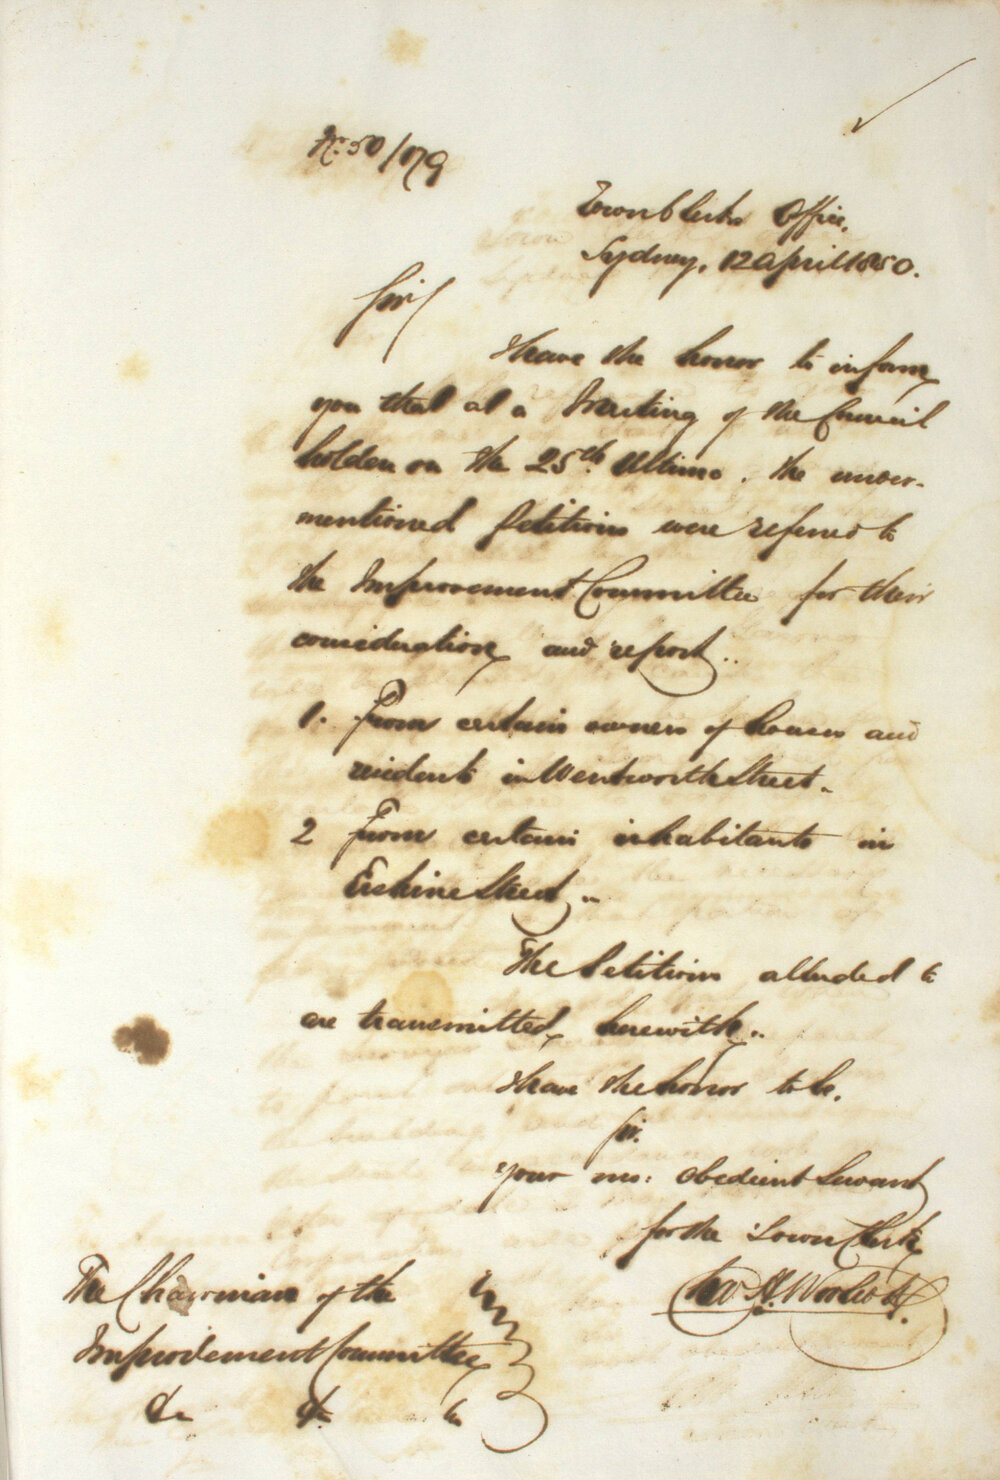 No. 50/179
Town Clerks Office,
Sydney, 12 April 1850.
Sir
I have the honor to inform
you that at a Meeting of the Council
holden on the 25th Ultimo, the under-
mentioned Petitions were referred to
the Improvement Committee for their
consideration and report.
1. From certain owners of houses and
residents in Wentworth Street.
2 From certain inhabitants in
Erskine Street.
The Petitions alluded to
are transmitted herewith.
I have the honor to be,
Sir.
your mo: obedient Servant
for the Town Clerk
The Chairman of the
Improvement Committee
&c &c &c